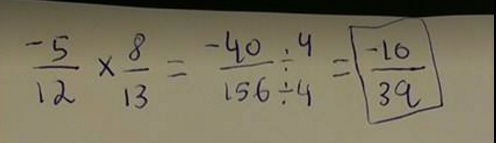 -5/12 × 8/13 = -40÷4/156÷4 = -10/39